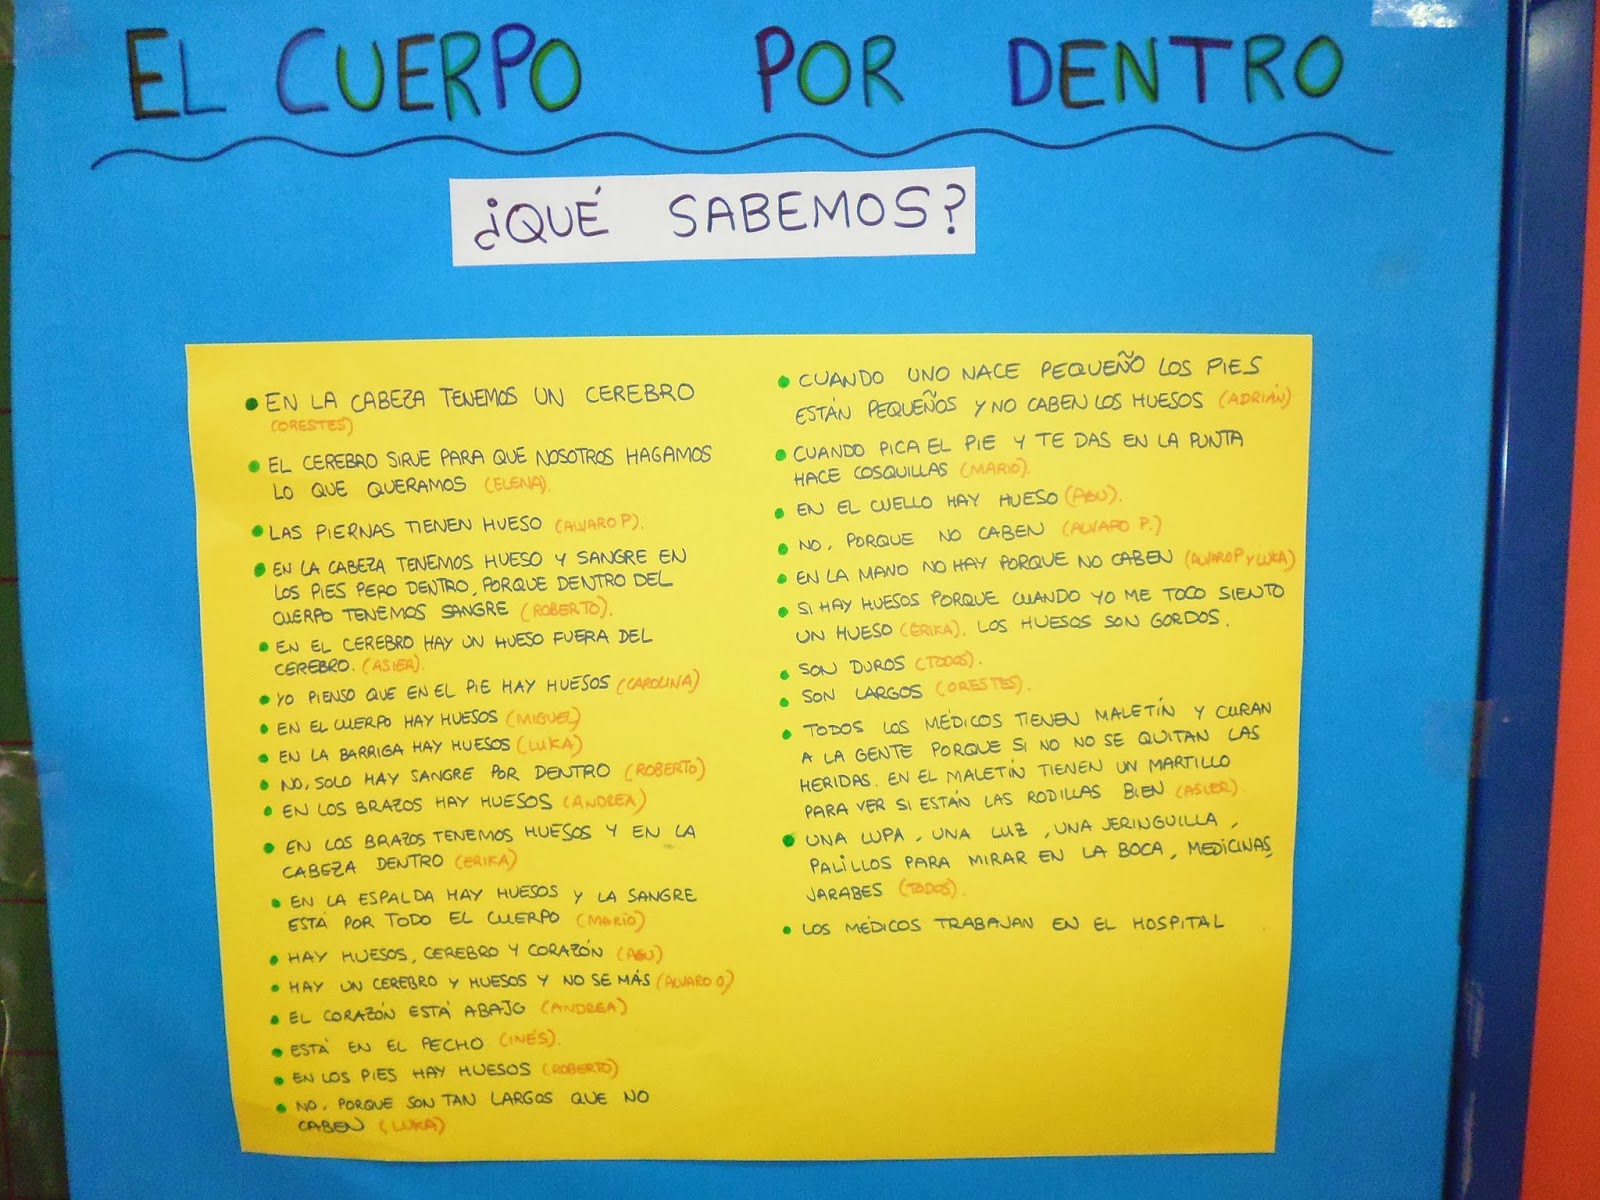 EL CUERPO POR DENTRO
¿QUÉ SABEMOS?
• EN LA CABEZA TENEMOS UN CEREBRO
(ORESTES)
• EL CEREBRO SIRVE PARA QUE NOSOTROS HAGAMOS
LO QUE QUERAMOS (ELENA).
• LAS PIERNAS TIENEN HUESO (ALVARO P).
• EN LA CABEZA TENEMOS HUESO Y SANGRE EN
LOS PIES PERO DENTRO, PORQUE DENTRO DEL
CUERPO TENEMOS SANGRE (ROBERTO).
• EN EL CEREBRO HAY UN HUESO FUERA DEL
CEREBRO. (ASIER).
• YO PIENSO QUE EN EL PIE HAY HUESOS (CAROLINA)
• EN EL CUERPO HAY HUESOS (MIGUEL)
• EN LA BARRIGA HAY HUESOS (LUKA)
• NO, SOLO HAY SANGRE POR DENTRO (ROBERTO)
• EN LOS BRAZOS HAY HUESOS (ANDREA)
• EN LOS BRAZOS TENEMOS HUESOS Y EN LA
CABEZA DENTRO (ERIKA)
• EN LA ESPALDA HAY HUESOS Y LA SANGRE
ESTÁ POR TODO EL CUERPO (MARIO)
• HAY HUESOS, CEREBRO Y CORAZÓN (AGU)
• HAY UN CEREBRO Y HUESOS Y NO SE MÁS (ALVARO O)
• EL CORAZÓN ESTÁ ABAJO (ANDREA)
• ESTÁ EN EL PECHO (INÉS).
• EN LOS PIES HAY HUESOS (ROBERTO)
• NO, PORQUE SON TAN LARGOS QUE NO
CABEN (LUKA)
• CUANDO UNO NACE PEQUEÑO LOS PIES
ESTÁN PEQUEÑOS Y NO CABEN LOS HUESOS (ADRIÁN)
• CUANDO PICA EL PIE Y TE DAS EN LA PUNTA
HACE COSQUILLAS (MARIO).
• EN EL CUELLO HAY HUESO (AGU).
• NO, PORQUE NO CABEN (ALVARO P.)
• EN LA MANO NO HAY PORQUE NO CABEN (ALVARO P Y LUKA)
• SI HAY HUESOS PORQUE CUANDO YO ME TOCO SIENTO
UN HUESO (ERIKA). LOS HUESOS SON GORDOS.
• SON DUROS (TODOS).
• SON LARGOS (ORESTES).
• TODOS LOS MÉDICOS TIENEN MALETÍN Y CURAN
A LA GENTE PORQUE SI NO NO SE QUITAN LAS
HERIDAS. EN EL MALETÍN TIENEN UN MARTILLO
PARA VER SI ESTÁN LAS RODILLAS BIEN (ASIER).
• UNA LUPA, UNA LUZ, UNA JERINGUILLA,
PALILLOS PARA MIRAR EN LA BOCA, MEDICINAS,
JARABES (TODOS).
• LOS MÉDICOS TRABAJAN EN EL HOSPITAL